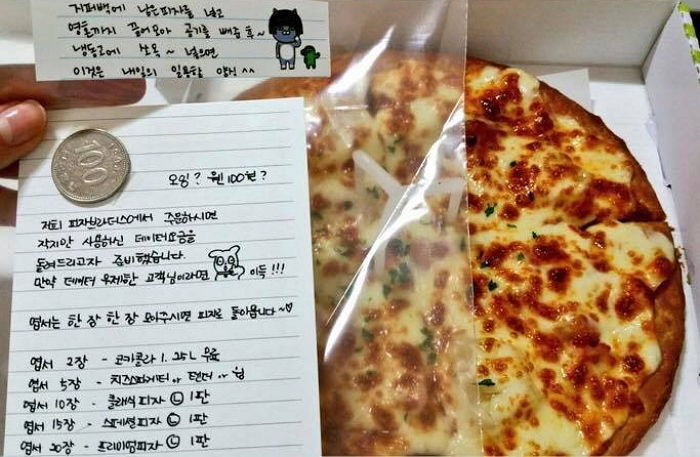 지퍼백에 남은피자를 넣고
영혼까지 끌어모아 공기를 빼준 훅~
냉동고에 쏘옥~ 넣으면
이것은 내일의 일용할 양식 ^^
100
오잉? 웬 100원?
저희 피자브라더스에서 주문하시면
작지만 사용하신 데이터요금을
돌려드리고자 준비했습니다.
만약 데이터 무제한 고객님이라면 이득!!!
엽서는 한 장 한 장 모아주시면 피자로 돌아옵니다~♡
엽서 2장 - 코카콜라 1.25L 무료
엽서 5장 - 치즈스파게티 or 텐더 or 윙
엽서 10장 - 클래식피자 Ⓛ 1판
엽서 15장 - 스페셜피자 Ⓛ 1판
엽서 20장 - 프리미엄피자 Ⓛ 1판